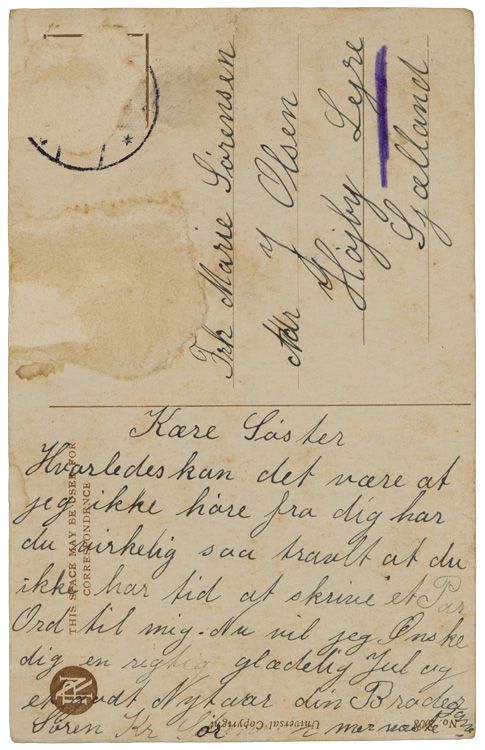 Frk Marie Sørensen
Adr J Olsen
Højby Lejre
Sjælland
Kære Søster
Hvorledes kan det være at
jeg ikke høre fra dig har
du virkelig saa travlt at du
ikke har tid at skrive et Par
Ord til mig. Nu vil jeg Ønske
dig en rigtig glædelig Jul og
et godt Nytaar din Broder
Søren Kr
THIS SPACE MAY BE USED FOR
CORRESPONDENCE
Universal Copyright
No. 2008